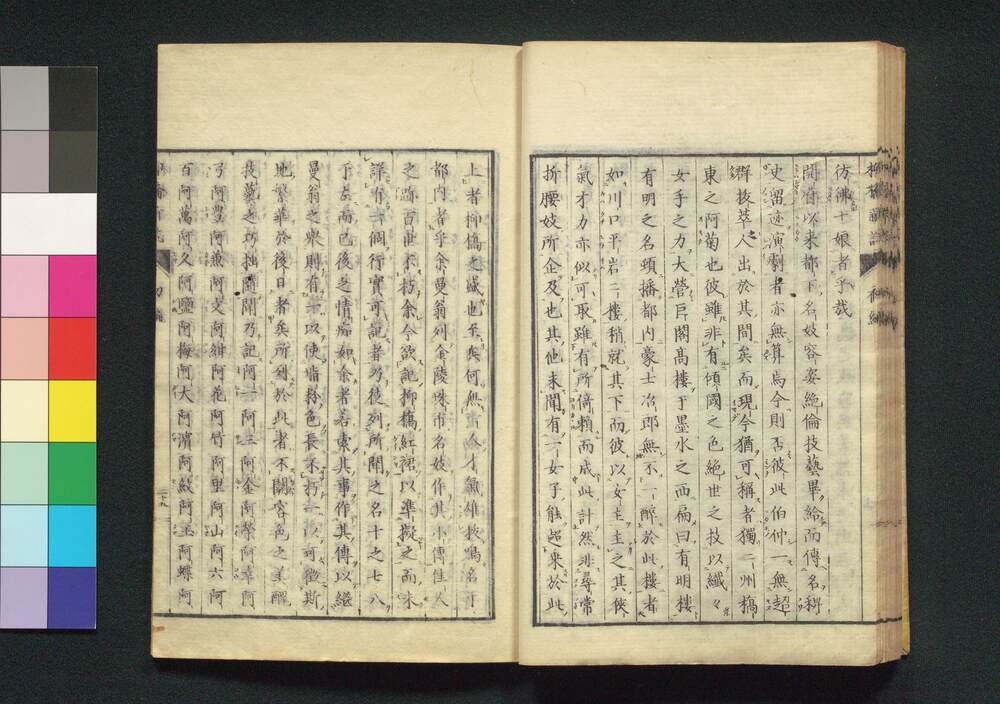 彷彿十娘者乎哉
聞有以来都下名妓容姿絶倫技藝畢給而傳名稱
史留迹演劇者亦無算焉今則否彼此伯仲一無超
群抜萃人出於其間矣而現今猶可稱者獨二州橋
東之阿菊也彼雖非有傾國之色絶世之技以纖々
女手之力大營巨閣髙樓于墨水之西扁曰有明樓
有明之名頭播都内豪士冶郎無不一醉於此樓者
如川口平岩二樓稍就其下而彼以女主主之其俠
氣才力亦似可取雖有所倚頼而成此計然非尋常
折腰妓所企及也其他未聞有一女子能超乗於此
上者柳橋之盛也至矣何無
都内者乎余曼翁列金陵珠市名妓作其小傳佳人
之跡百世不朽余今欲記柳橋紅裙以準擬之而未
詳有一個行實可記者乃徒列所聞之名十之七八
于左而已後之情痴如余者若索其事作其傳以繼
曼翁之擧則有一以使脂粉色長不朽一以可徴斯
地繁華於後日者矣所列於此者不關容色之美醜
技藝之巧拙隨聞乃記阿一阿三阿金阿榮阿幸阿
弓阿豊阿兼阿文阿紺阿花阿竹阿里阿山阿六阿
百阿萬阿久阿鹽阿梅阿大阿濱阿紋阿玉阿蝶阿